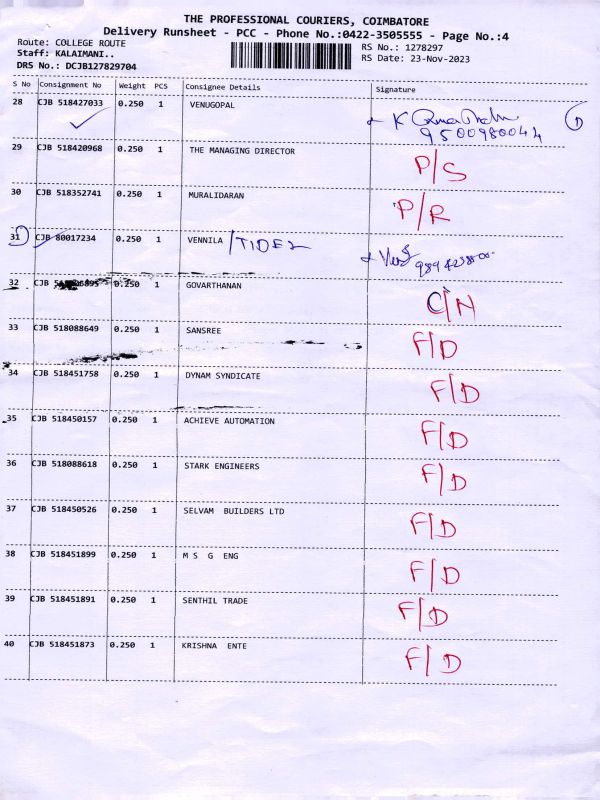 THE PROFESSIONAL COURIERS, COIMBATORE
Delivery Runsheet - PCC - Phone No.:0422-3505555 - Page No.:4
Route: COLLEGE ROUTE
Staff: KALAIMANI..
DRS No.: DCJB127829704
RS No.: 1278297
RS Date: 23-Nov-2023
S No Consignment No Weight PCS Consignee Details Signature
28 CJB 518427033 0.250 1 VENUGOPAL K
9500980044
29 CJB 518420968 0.250 1 THE MANAGING DIRECTOR P/S
30 CJB 518352741 0.250 1 MURALIDARAN P/R
31 CJB 80017234 0.250 1 VENNILA /TIDEL
32 CJB 0.250 1 GOVARTHANAN C/N
33 CJB 518088649 0.250 1 SANSREE F/D
34 CJB 518451758 0.250 1 DYNAM SYNDICATE F/D
35 CJB 518450157 0.250 1 ACHIEVE AUTOMATION F/D
36 CJB 518088618 0.250 1 STARK ENGINEERS F/D
37 CJB 518450526 0.250 1 SELVAM BUILDERS LTD F/D
38 CJB 518451899 0.250 1 M S G ENG F/D
39 CJB 518451891 0.250 1 SENTHIL TRADE F/D
40 CJB 518451873 0.250 1 KRISHNA ENTE F/D